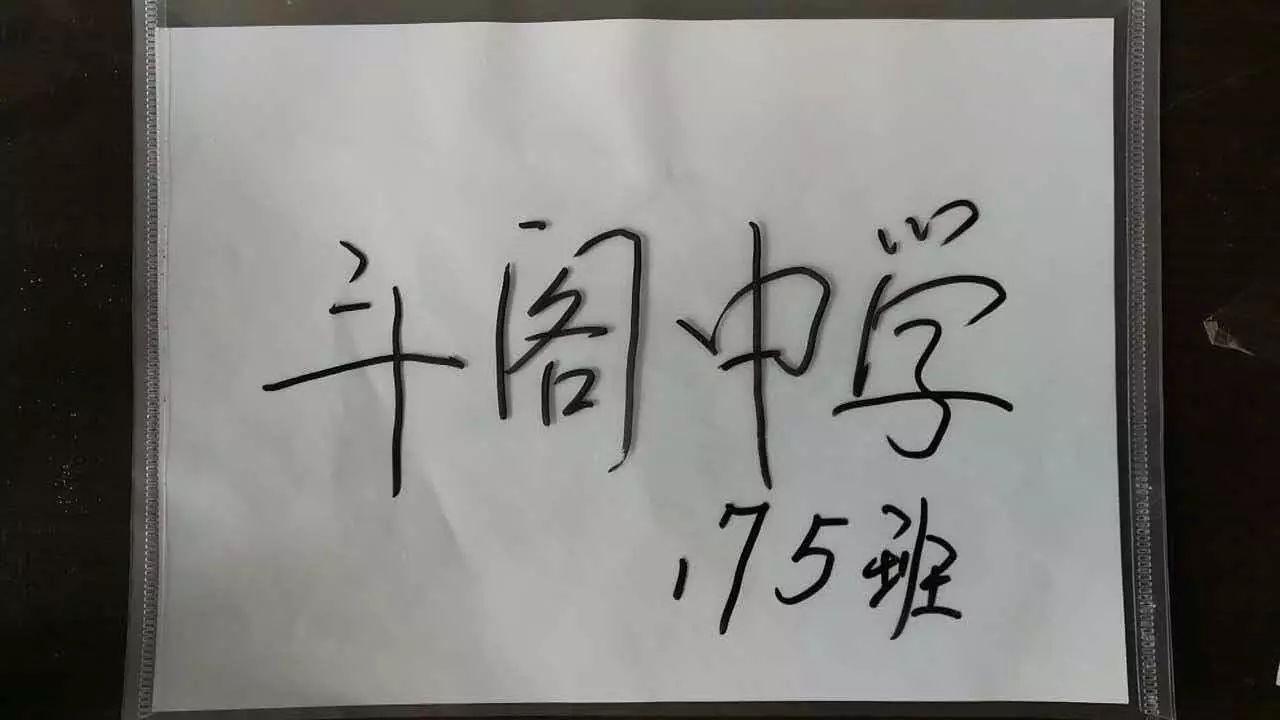 斗阁中学
175班